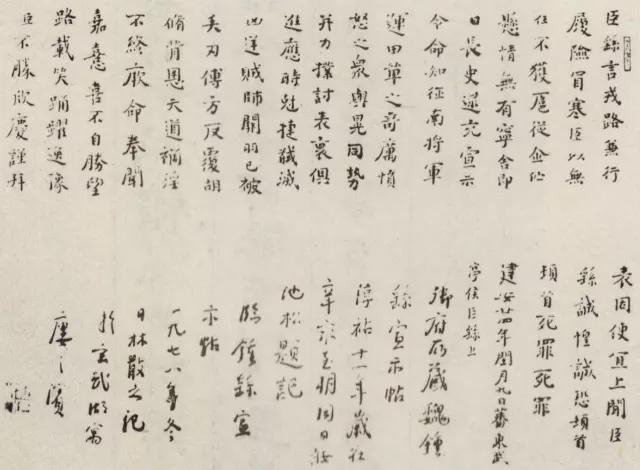 臣繇言戎路兼行
履險冒寒臣以無
任不獲扈從企佇
懸情無有寧舍即
日長史逮充宣示
令命知征南將軍
運田單之奇厲憤
怒之衆與晃同勢
并力撲討表裏俱
進應時尅捷馘滅
凶逆賊帥關羽已被
矢刃傅方反覆胡
脩背恩天道禍淫
不終厥命奉聞
嘉憙喜不自勝望
路載笑踊躍逸豫
臣不勝欣慶謹拜
表因便宜上聞臣
繇誠惶誠恐頓首
頓首死罪死罪
建安廿四年閏月九日蕃東武
亭侯臣繇上
御府所藏魏鍾
繇宣示帖
淳祐十一年歲在
辛亥朔同日
池松題記
臨鍾繇宣
示帖
一九七八年冬
日林散之記
於玄武湖寓
之